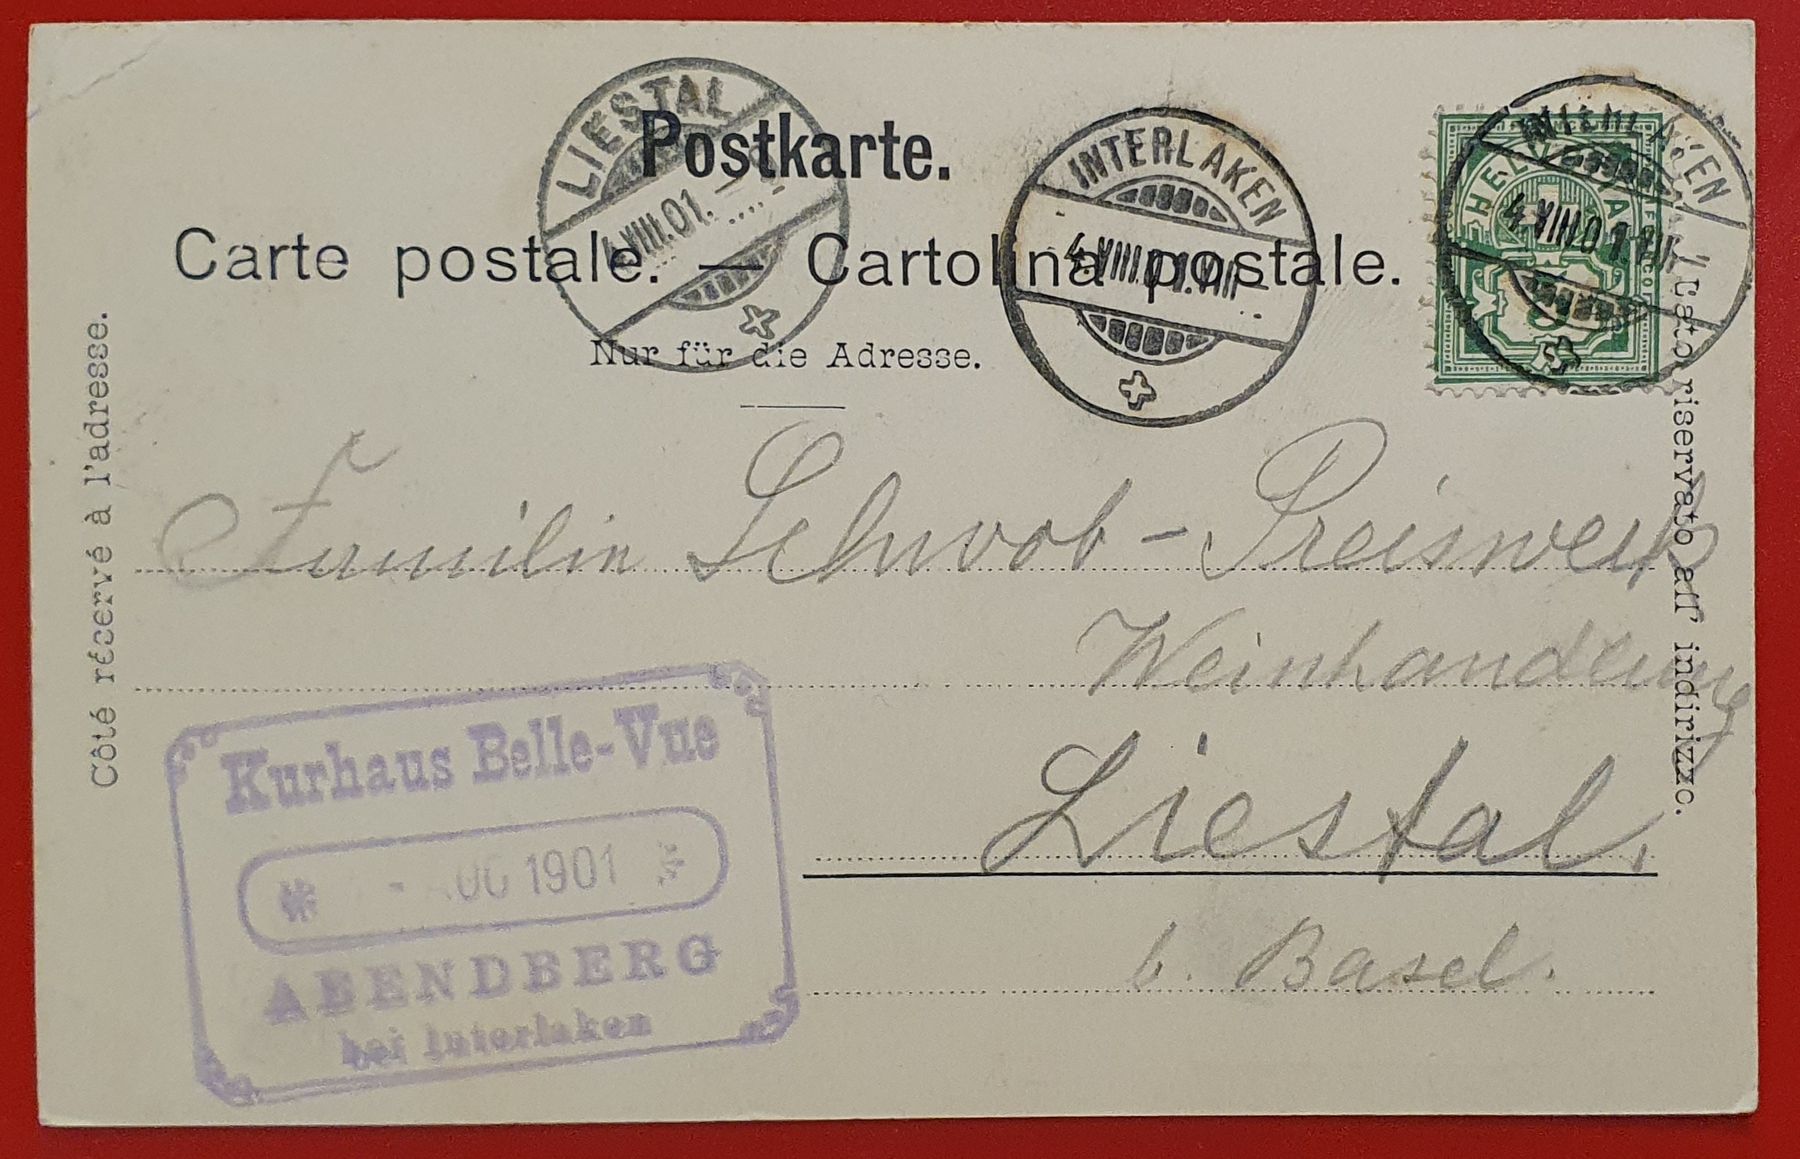 LIESTAL
4.VIII.01.
Postkarte.
INTERLAKEN
4.VIII.01.VII
INTERLAKEN
4.VIII.01.VII
HELVETIA
FRANCO
5
Carte postale. — Cartolina postale.
Nur für die Adresse.
Côté réservé à l'adresse.
Lato riservato all' indirizzo.
Familie Schwob-Preiswerk
Weinhandlung
Liestal.
b. Basel.
Kurhaus Belle-Vue
AUG 1901
ABENDBERG
bei Interlaken